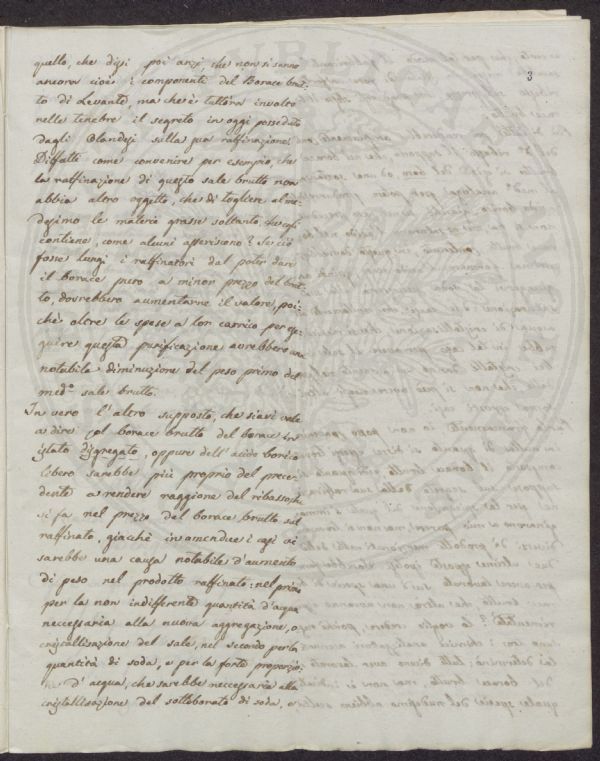 3
quello, che dissi poi anzi, che non si sanno
ancora cioè i componenti del Borace brut-
to di Levante, ma che è tuttora involto
nelle tenebre il segreto in oggi posseduto
dagli Olandesi sulla sua raffinazione.
Diffatti come convenire per esempio, che
la raffinazione di questo sale brutto non
abbia altro oggetto, che di togliere al me-
desimo le materie grasse soltanto, che egli
contiene, come alcuni asseriscono? Se ciò
fosse lungi i raffinatori dal poter dare
il borace puro a minor prezzo del brut-
to, dovrebbero aumentarne il valore, poi-
chè oltre le spese a lor carrico per ese-
guire questa purificazione avrebbero una
notabile diminuzione del peso primo del
med.o sale brutto.
In vero l'altro supposto, che siavi vale
a dire col borace brutto del borace in
istato disgregato, oppure dell'acido borico
libero sarebbe più proprio del prece-
dente a rendere raggione del ribasso, che
si fa nel prezzo del borace brutto sul
raffinato, giacchè in amendue i casi vi
sarebbe una causa notabile d'aumento
di peso nel prodotto raffinato: nel primo
per la non indifferente quantità d'acqua
neccessaria alla nuova aggregazione, o
cristallisazione del sale, nel secondo per la
quantità di soda, e per la forte proporzio-
ne d'acqua, che sarebbe neccessaria alla
cristallisazione del sottoborato di soda, e